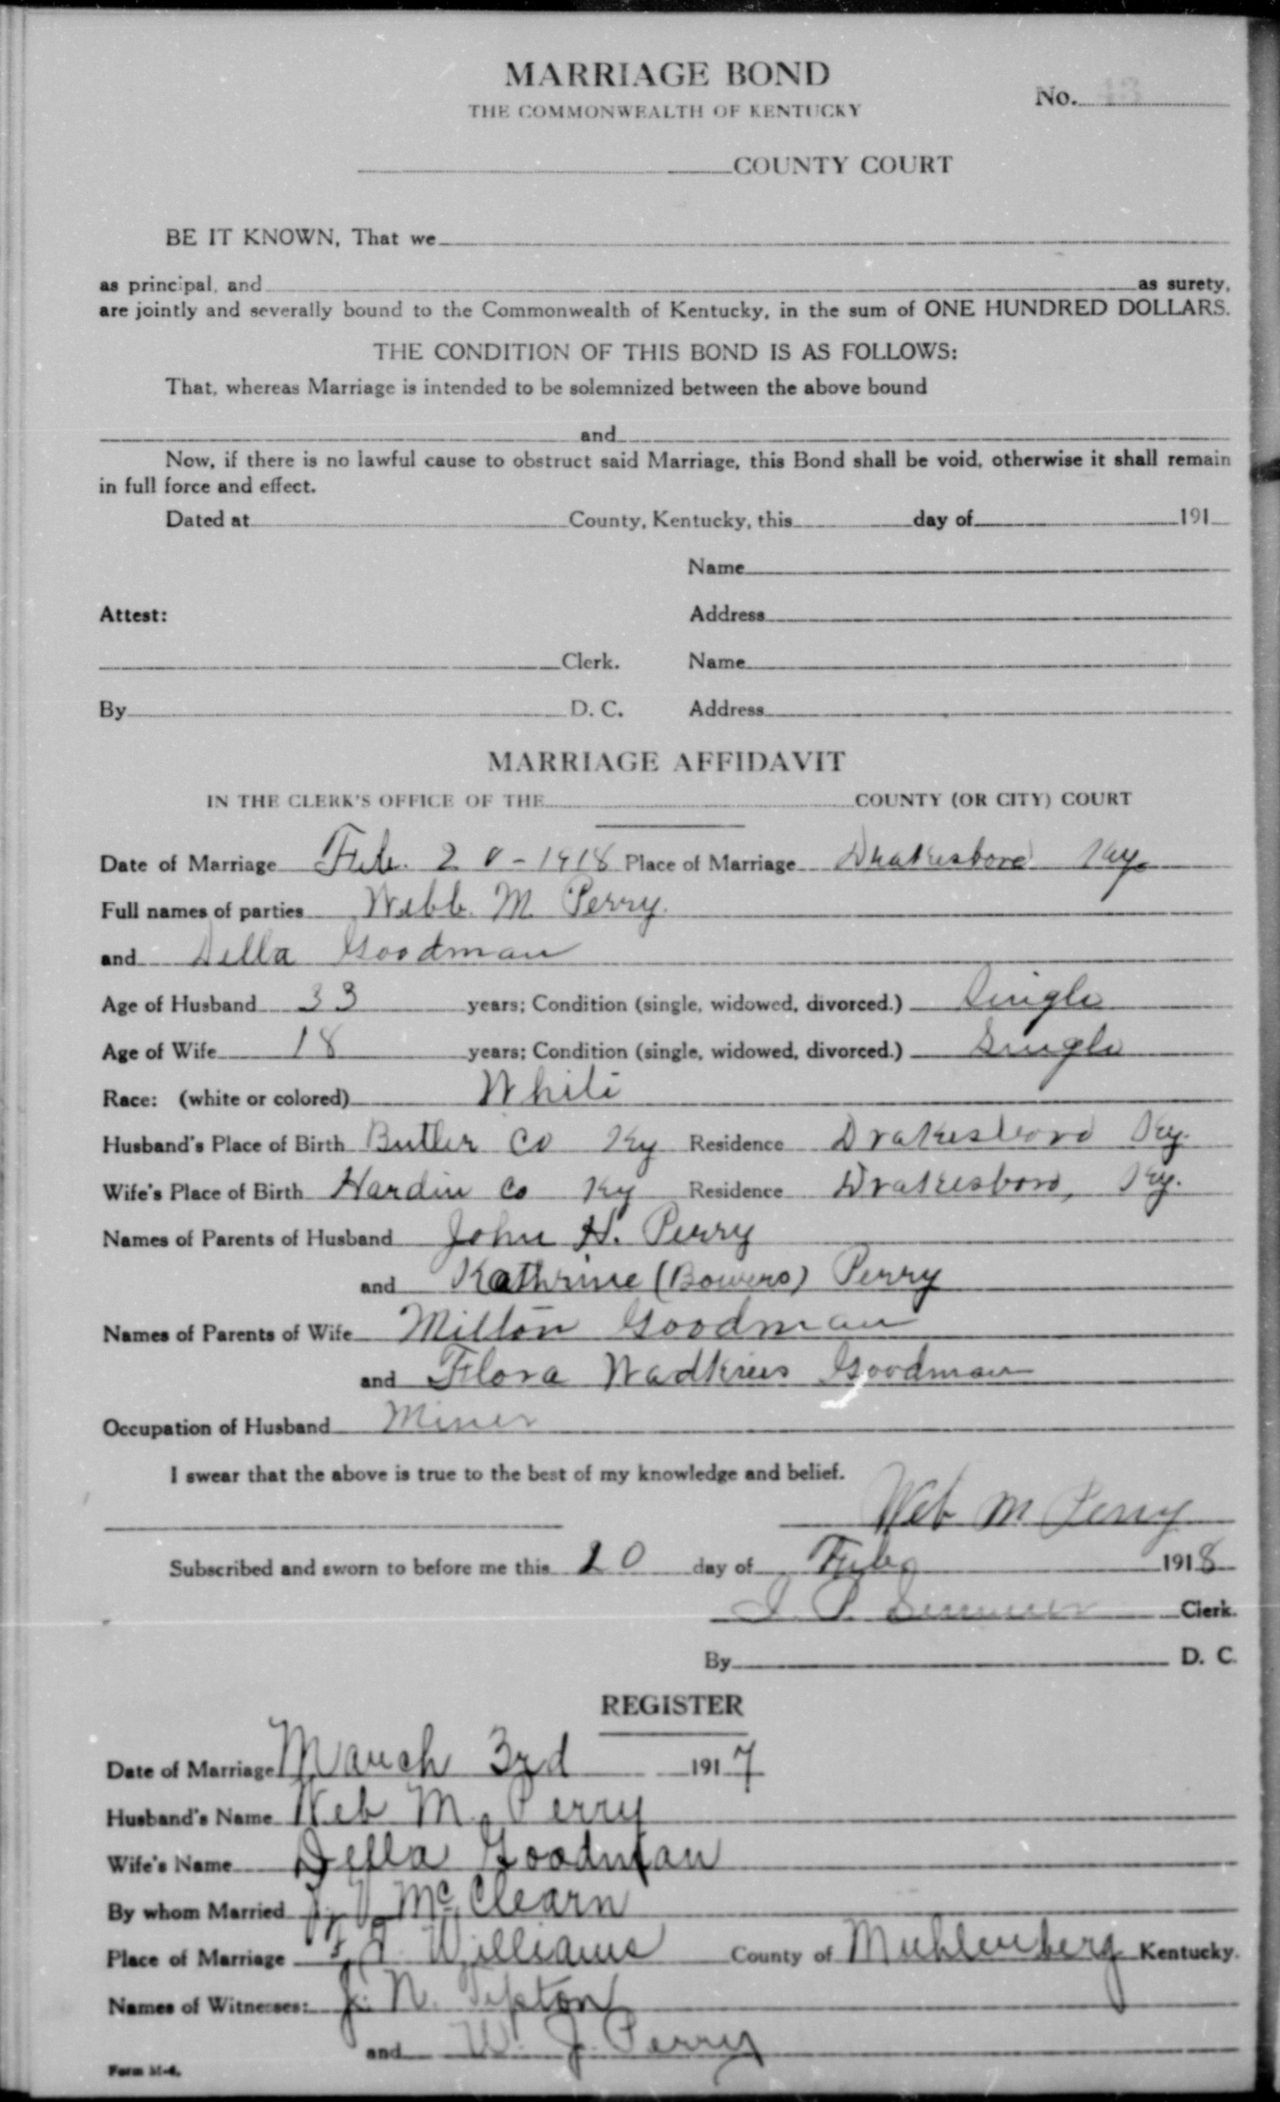 MARRIAGE BOND
THE COMMONWEALTH OF KENTUCKY
No. 43
COUNTY COURT
BE IT KNOWN, That we
as principal, and as surety,
are jointly and severally bound to the Commonwealth of Kentucky, in the sum of ONE HUNDRED DOLLARS.
THE CONDITION OF THIS BOND IS AS FOLLOWS:
That, whereas Marriage is intended to be solemnized between the above bound
and
Now, if there is no lawful cause to obstruct said Marriage, this Bond shall be void, otherwise it shall remain
in full force and effect.
Dated at County, Kentucky, this day of 191
Name
Attest: Address
Clerk. Name
By D. C. Address
MARRIAGE AFFIDAVIT
IN THE CLERK'S OFFICE OF THE COUNTY (OR CITY) COURT
Date of Marriage Feb. 20-1918 Place of Marriage Drakesboro Ky.
Full names of parties Webb. M. Perry.
and Della Goodman
Age of Husband 33 years; Condition (single, widowed, divorced.) Single
Age of Wife 18 years; Condition (single, widowed, divorced.) Single
Race: (white or colored) White
Husband's Place of Birth Butler Co Ky Residence Drakesboro Ky.
Wife's Place of Birth Hardin Co Ky Residence Drakesboro, Ky.
Names of Parents of Husband John H. Perry
and Kathrine (Bowers) Perry
Names of Parents of Wife Milton Goodman
and Flora Wadkins Goodman
Occupation of Husband Miner
I swear that the above is true to the best of my knowledge and belief.
Web M Perry
Subscribed and sworn to before me this 20 day of Feb. 1918
Clerk.
By D. C.
REGISTER
Date of Marriage March 3rd 1917
Husband's Name Web M. Perry
Wife's Name Della Goodman
By whom Married McClearn
Place of Marriage Williams County of Muhlenberg Kentucky.
Names of Witnesses: J. N. Tipton
and W. J. Perry
Form M-4.